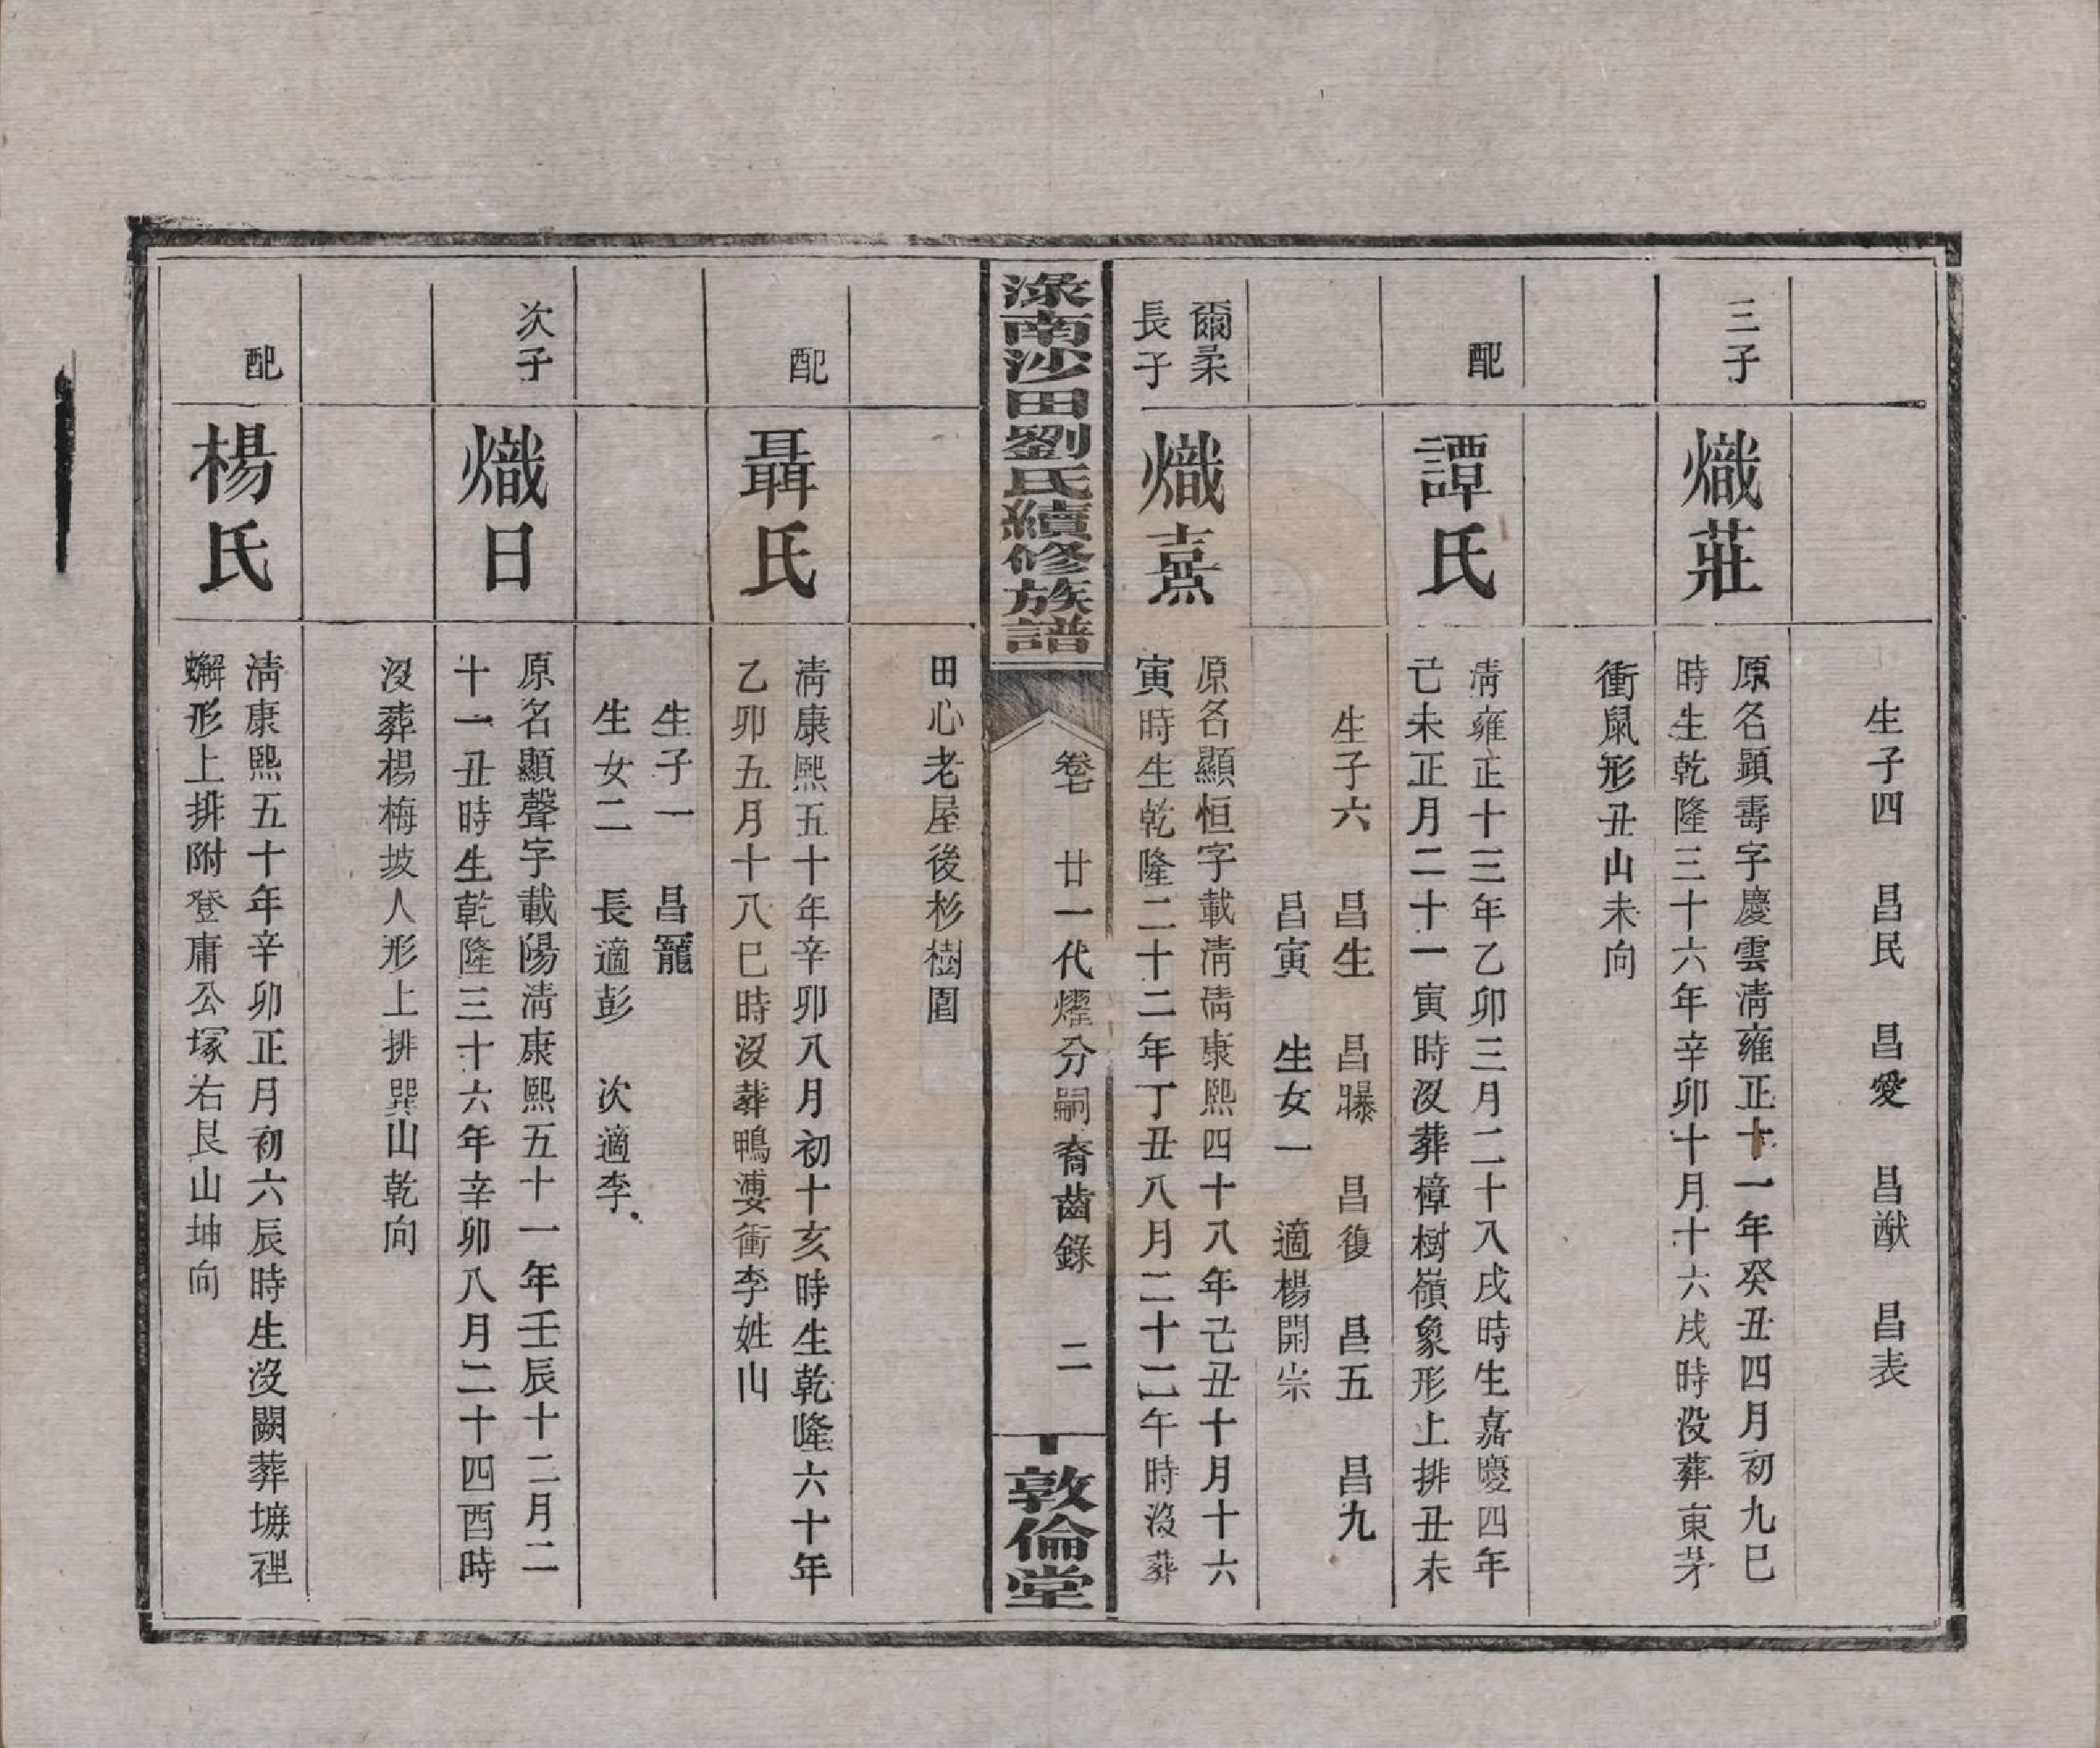 生子四　昌民　昌愛　昌猷　昌表
三子
熾莊
原名顯壽字慶雲淸雍正十一年癸丑四月初九巳
時生乾隆三十六年辛卯十月十六戌時没葬東茅
衝鼠形丑山未向
配
譚氏
淸雍正十三年乙卯三月二十八戌時生嘉慶四年
己未正月二十一寅時没葬樟樹嶺象形上排丑未
生子六　昌生　昌曝　昌復　昌五　昌九
昌寅　生女一　適楊開崇
爾柔
長子
熾熹
原名顯恒字載淸淸康熙四十八年己丑十月十六
寅時生乾隆二十二年丁丑八月二十二午時没葬
淥南沙田劉氏續修族譜
卷七　廿一代燿分嗣裔齒錄　二
敦倫堂
田心老屋後杉樹園
配
聶氏
淸康熙五十年辛卯八月初十亥時生乾隆六十年
乙卯五月十八巳時没葬鴨婆衝李姓山
生子一　昌寵
生女二　長適彭　次適李
次子
熾日
原名顯聲字載陽淸康熙五十一年壬辰十二月二
十一丑時生乾隆三十六年辛卯八月二十四酉時
没葬楊梅坡人形上排巽山乾向
配
楊氏
淸康熙五十年辛卯正月初六辰時生没闕葬塘裡
蠏形上排附登庸公塚右艮山坤向